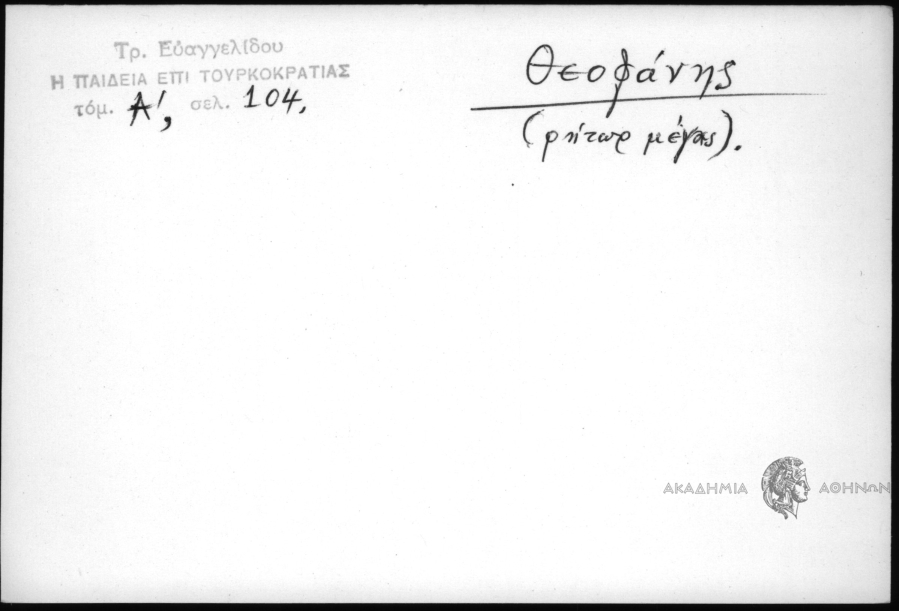 Τρ. Εὐαγγελίδου
Η ΠΑΙΔΕΙΑ ΕΠΙ ΤΟΥΡΚΟΚΡΑΤΙΑΣ
τόμ. Α′, σελ. 104.
Θεοφάνης
(ρήτωρ μέγας).
ΑΚΑΔΗΜΙΑ ΑΘΗΝΩΝ